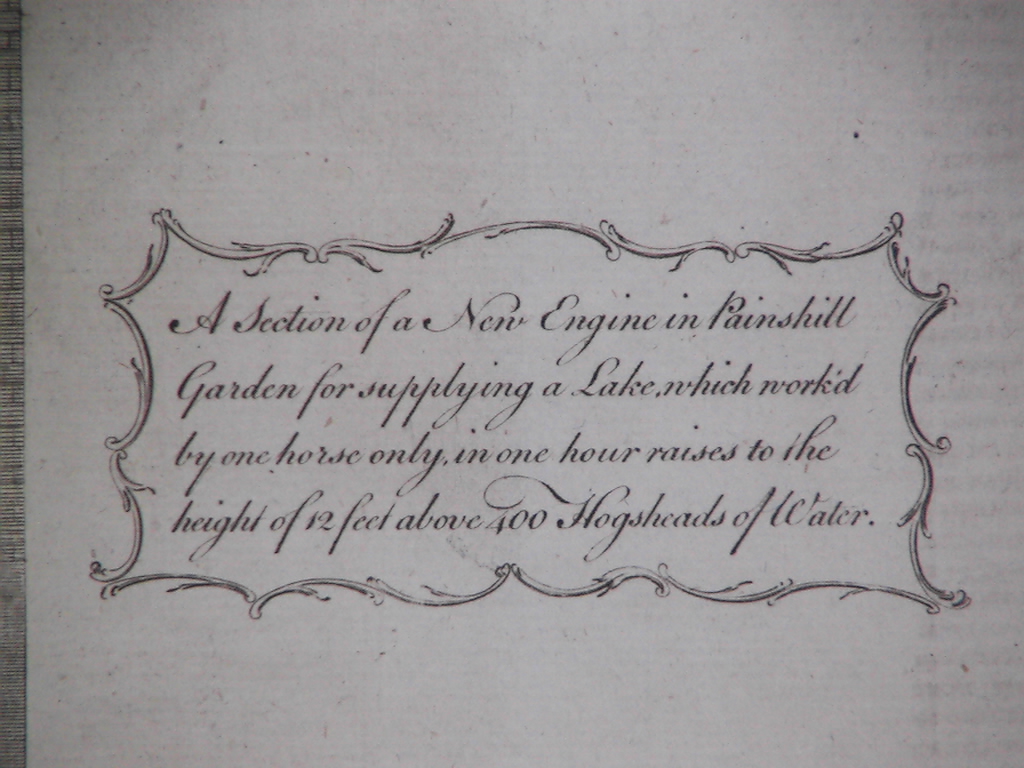 A Section of a New Engine in Painshill
Garden for supplying a Lake, which work'd
by one horse only, in one hour raises to the
height of 12 feet above 400 Hogsheads of Water.